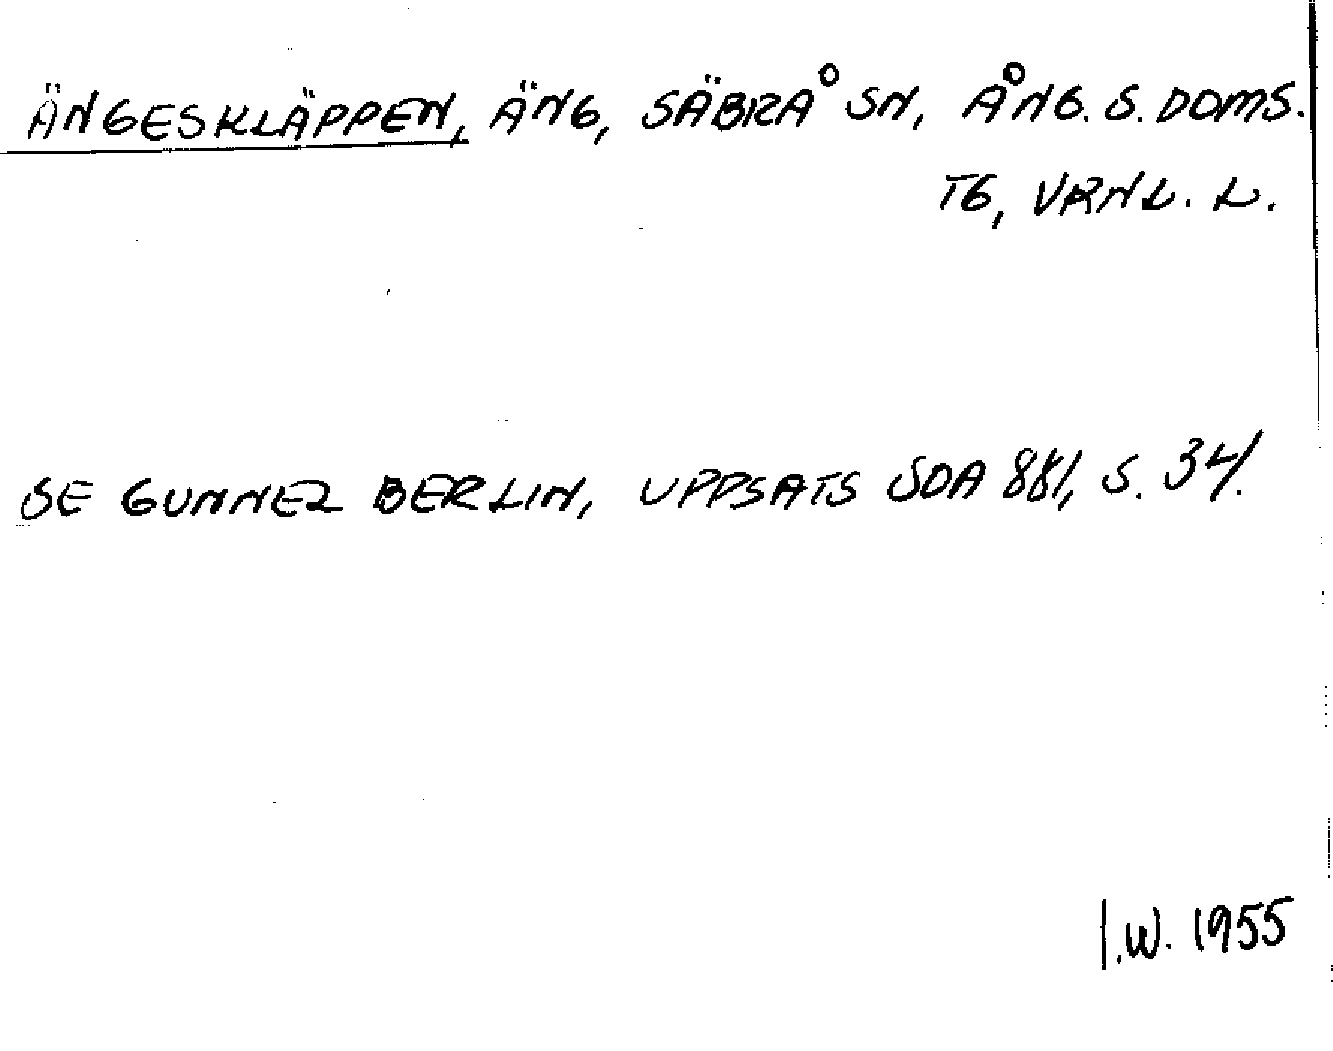 ÄNGESKLÄPPEN, ÄNG, SÄBRÅ SN, ÅNG. S. DOMS.
TG, VRNL. L.
SE GUNNEL BERLIN, UPPSATS SOA 881, S. 34.
I.W. 1955